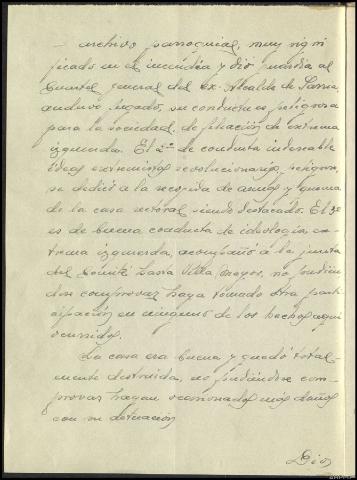 archivo parroquial, muy signi
ficado en el incendio y dió guardia al
Cuartel general del ex-Alcalde de Sarria
anduvo fugado, su conducta es peligrosa
para la sociedad, de filiación de extrema
izquierda. El 2º de conducta indeseable
ideas extremistas revolucionarias, peligroso,
se dedicó a la recogida de armas y quema
de la casa rectoral siendo destacado. El 3º
es de buena conducta de ideología, ex-
trema izquierda, acompañó a la junta
del Comité
no pudien
dose comprovar haya tomado otra parti-
cipación en ninguno de los hechos aqui
ocurridos.
La casa era buena y quedó total-
mente destruida, no pudiéndose com-
provar hayan ocasionados más daños
con su actuación
Dios